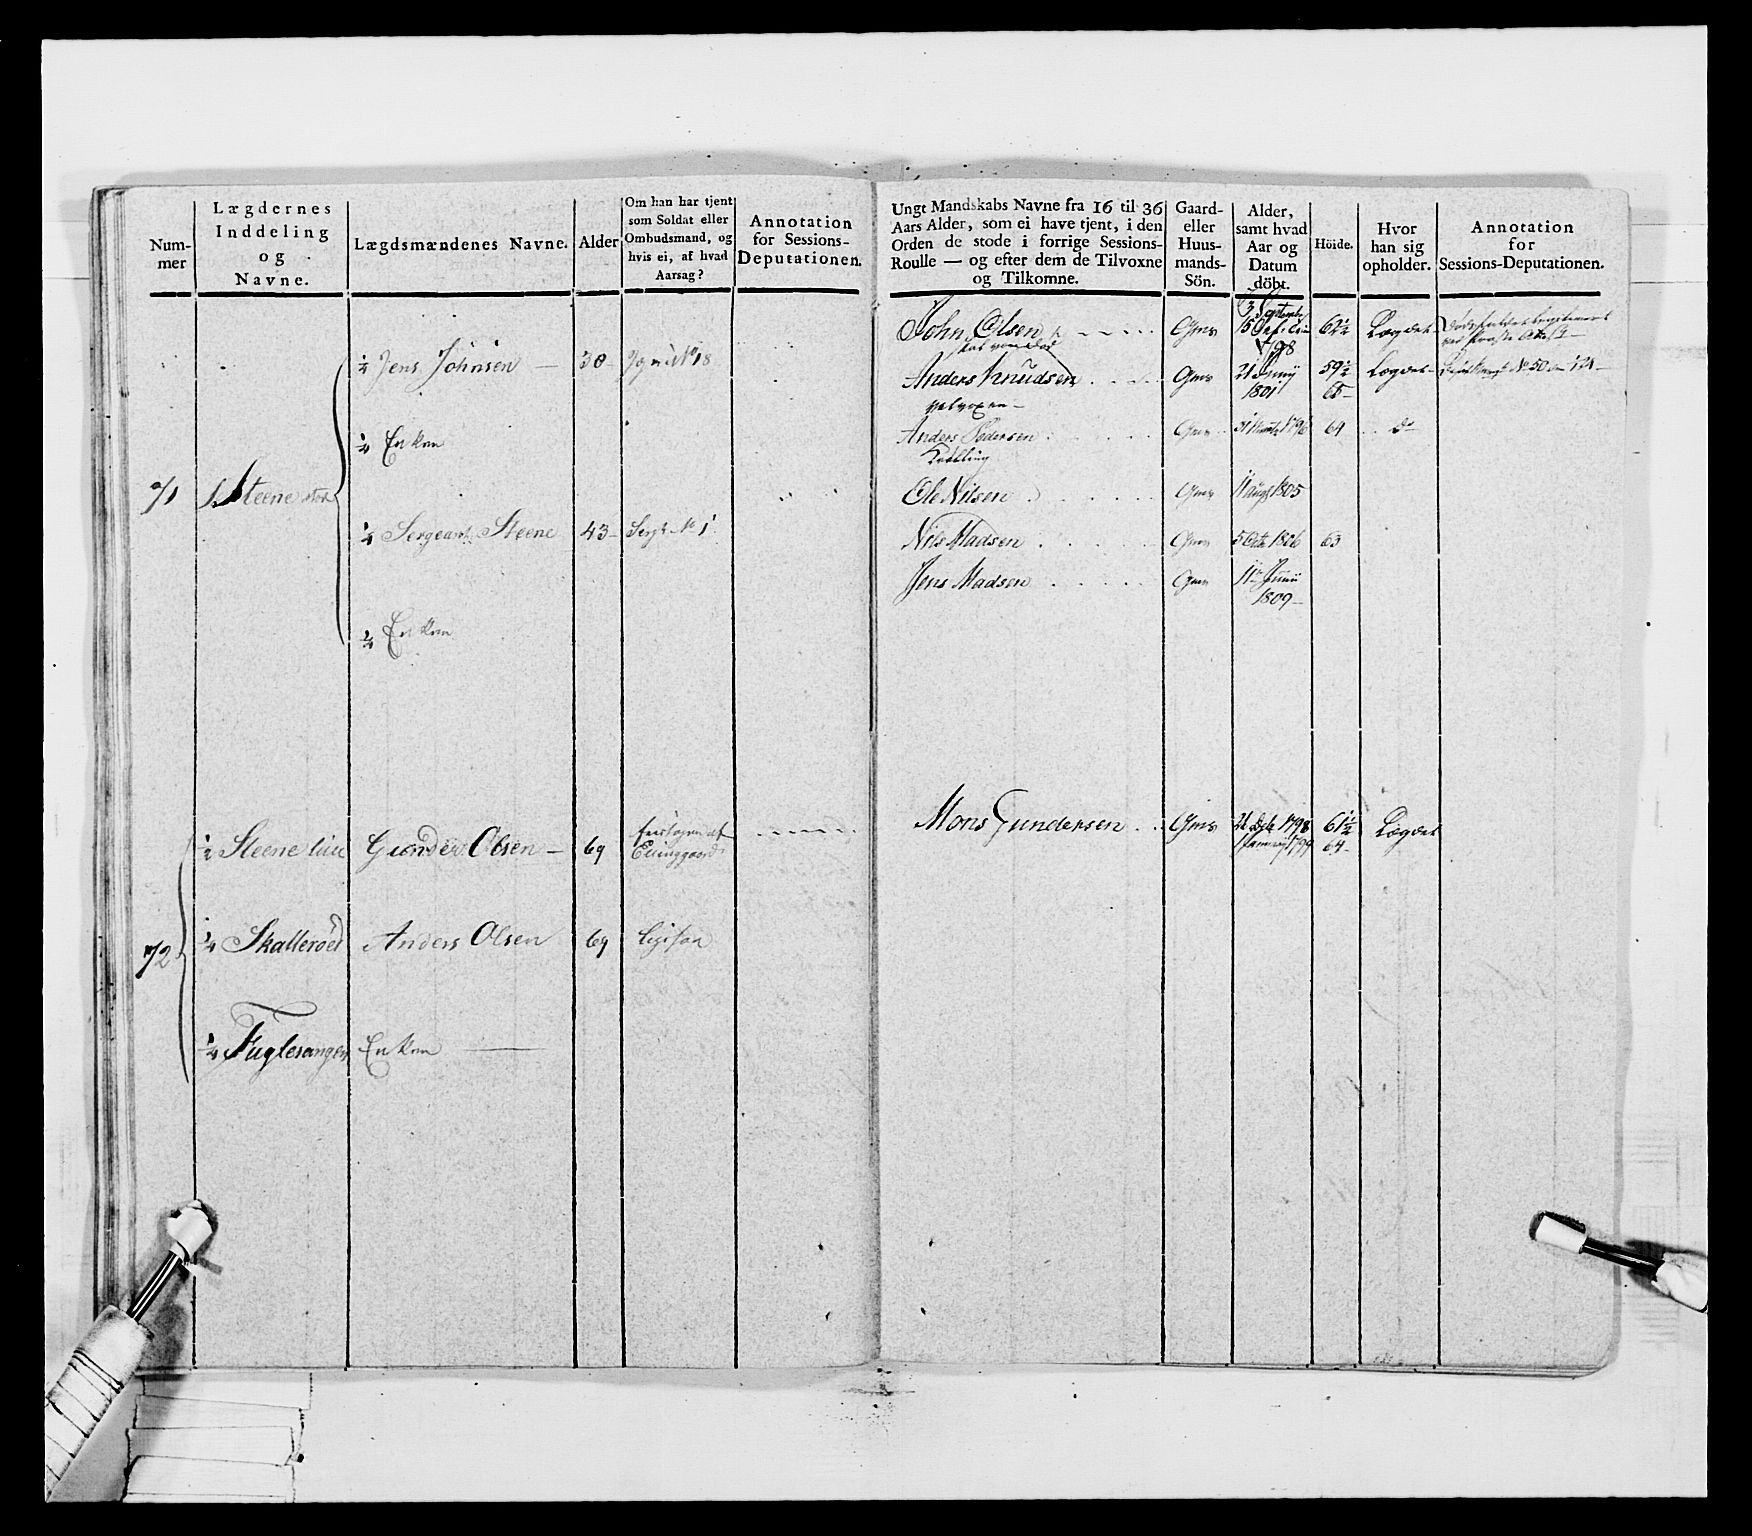 Num-
mer
Lægdernes
Inddeling
og
Navne.
Lægdsmændenes Navne.
Alder
Om han har tjent
som Soldat eller
Ombudsmand, og
hvis ei, af hvad
Aarsag?
Annotation
for Sessions-
Deputationen.
71
1 Steene stor
1/4 Jens Johnsen — 30 No 18
1/4 Enken
1/4 Sergeant Steene 43 Sergt No 1
1/4 Enken
72
1/2 Steene liile Gunder Olsen — 69
Elinggaard
1/4 Skalleröed Anders Olsen 69 ligesaa
1/4 Fuglesangen Enken
Ungt Mandskabs Navne fra 16 til 36
Aars Alder, som ei have tjent, i den
Orden de stode i forrige Sessions-
Roulle — og efter dem de Tilvoxne
og Tilkomne.
Gaard-
eller
Huus-
mands-
Sön.
Alder,
samt hvad
Aar og
Datum
döbt.
Höide.
Hvor
han sig
opholder.
Annotation
for
Sessions-Deputationen.
John Olsen Gms 1798 62 1/2 Lægdet
Anders Knudsen Gms 21 Juny 1801 59 1/2 Lægdet No 50
Anders Pedersen Gms 1796 64 do
Ole Nilsen Gms 11 Augt 1805
Nils Madsen Gms 5 Octr 1806 63
Jens Madsen Gms 11 Junii
1809
Mons Gundersen Gms 1798 61 1/2 Lægdet
1799 64